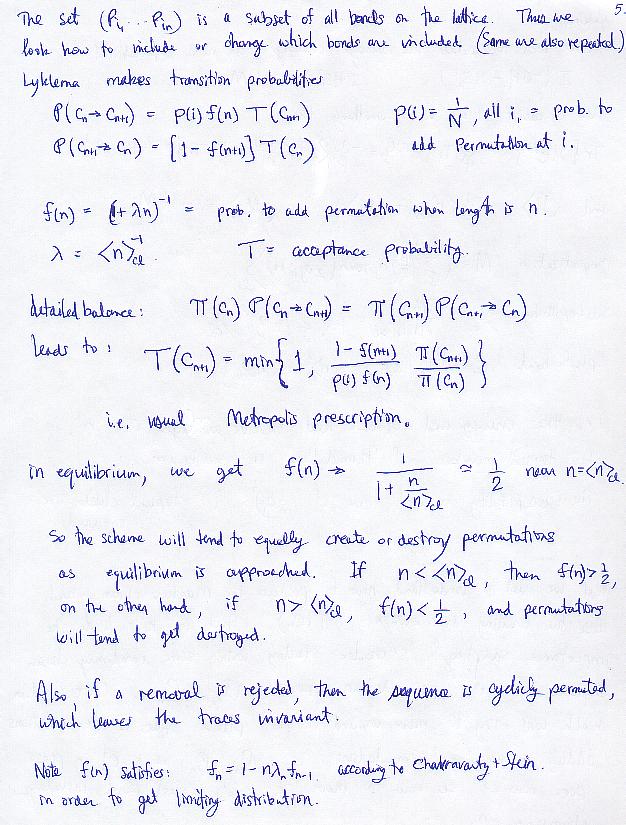 5.
The set (P_{i_1} ... P_{i_n}) is a subset of all bonds on the lattice. Thus we
look how to include or change which bonds are included (Some are also repeated)
Lyklema makes transition probabilities
P(C_n → C_{n+1}) = p(i) f(n) T(C_{n+1}) p(i) = 1/N, all i, = prob. to
P(C_{n+1} → C_n) = [1 - f(n+1)] T(C_n) add Permutation at i.
f(n) = (1 + λn)^{-1} = prob. to add permutation when length is n.
λ = <n>_{cl}^{-1}. T = acceptance probability.
detailed balance: Π(C_n) P(C_n → C_{n+1}) = Π(C_{n+1}) P(C_{n+1} → C_n)
leads to: T(C_{n+1}) = min { 1, (1 - f(n+1))/(p(i) f(n)) Π(C_{n+1})/Π(C_n) }
i.e. usual Metropolis prescription.
in equilibrium, we get f(n) → 1/(1 + n/<n>_{cl}) ≈ 1/2 near n = <n>_{cl}.
So the scheme will tend to equally create or destroy permutations
as equilibrium is approached. If n < <n>_{cl}, then f(n) > 1/2,
on the other hand, if n > <n>_{cl}, f(n) < 1/2, and permutations
will tend to get destroyed.
Also, if a removal is rejected, then the sequence is cyclicly permuted,
which leaves the traces invariant.
Note f(n) satisfies: f_n = 1 - nλ_n f_{n-1} according to Chakravarty + Stein.
in order to get limiting distribution.